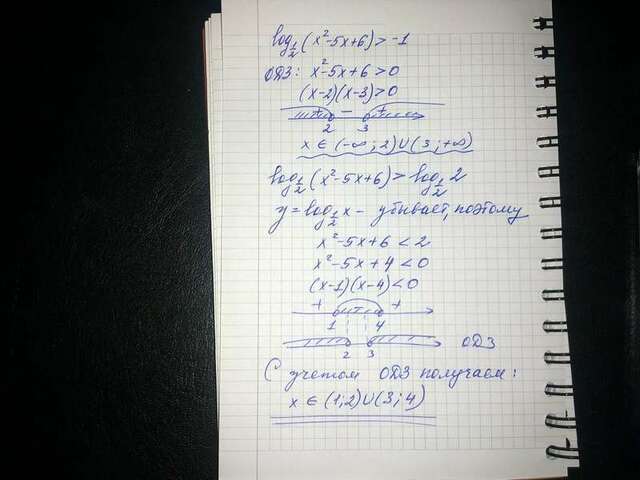 log½(x²-5x+6)>-1
ОДЗ: x²-5x+6>0
(x-2)(x-3)>0
+ - +
2 3
x ∈ (-∞;2)∪(3;+∞)
log½(x²-5x+6)>log½2
y=log½x - убывает, поэтому
x²-5x+6<2
x²-5x+4<0
(x-1)(x-4)<0
+ - +
1 4
2 3 ОДЗ
С учетом ОДЗ получаем:
x ∈ (1;2)∪(3;4)